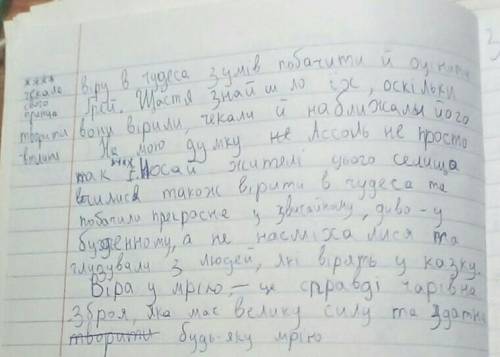 чекала
свого
принца
творити
віру в чудеса зумів побачити й оцінити
Грей. Щастя знайшло їх, оскільки
вони вірили, чекали й наближали його
На мою думку не Ассоль не просто
так жителі цього селища
вчилися також вірити в чудеса та
побачили прекрасне у звичайному, диво - у
буденному, а не насміхалися та
глудували з людей, які вірять у казку.
Віра у мрію, - це справді чарівна
зброя, яка має велику силу та здатна
творити будь-яку мрію